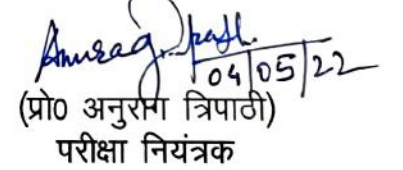 Anurag Tripathi
04/05/22
(प्रो0 अनुराग त्रिपाठी)
परीक्षा नियंत्रक